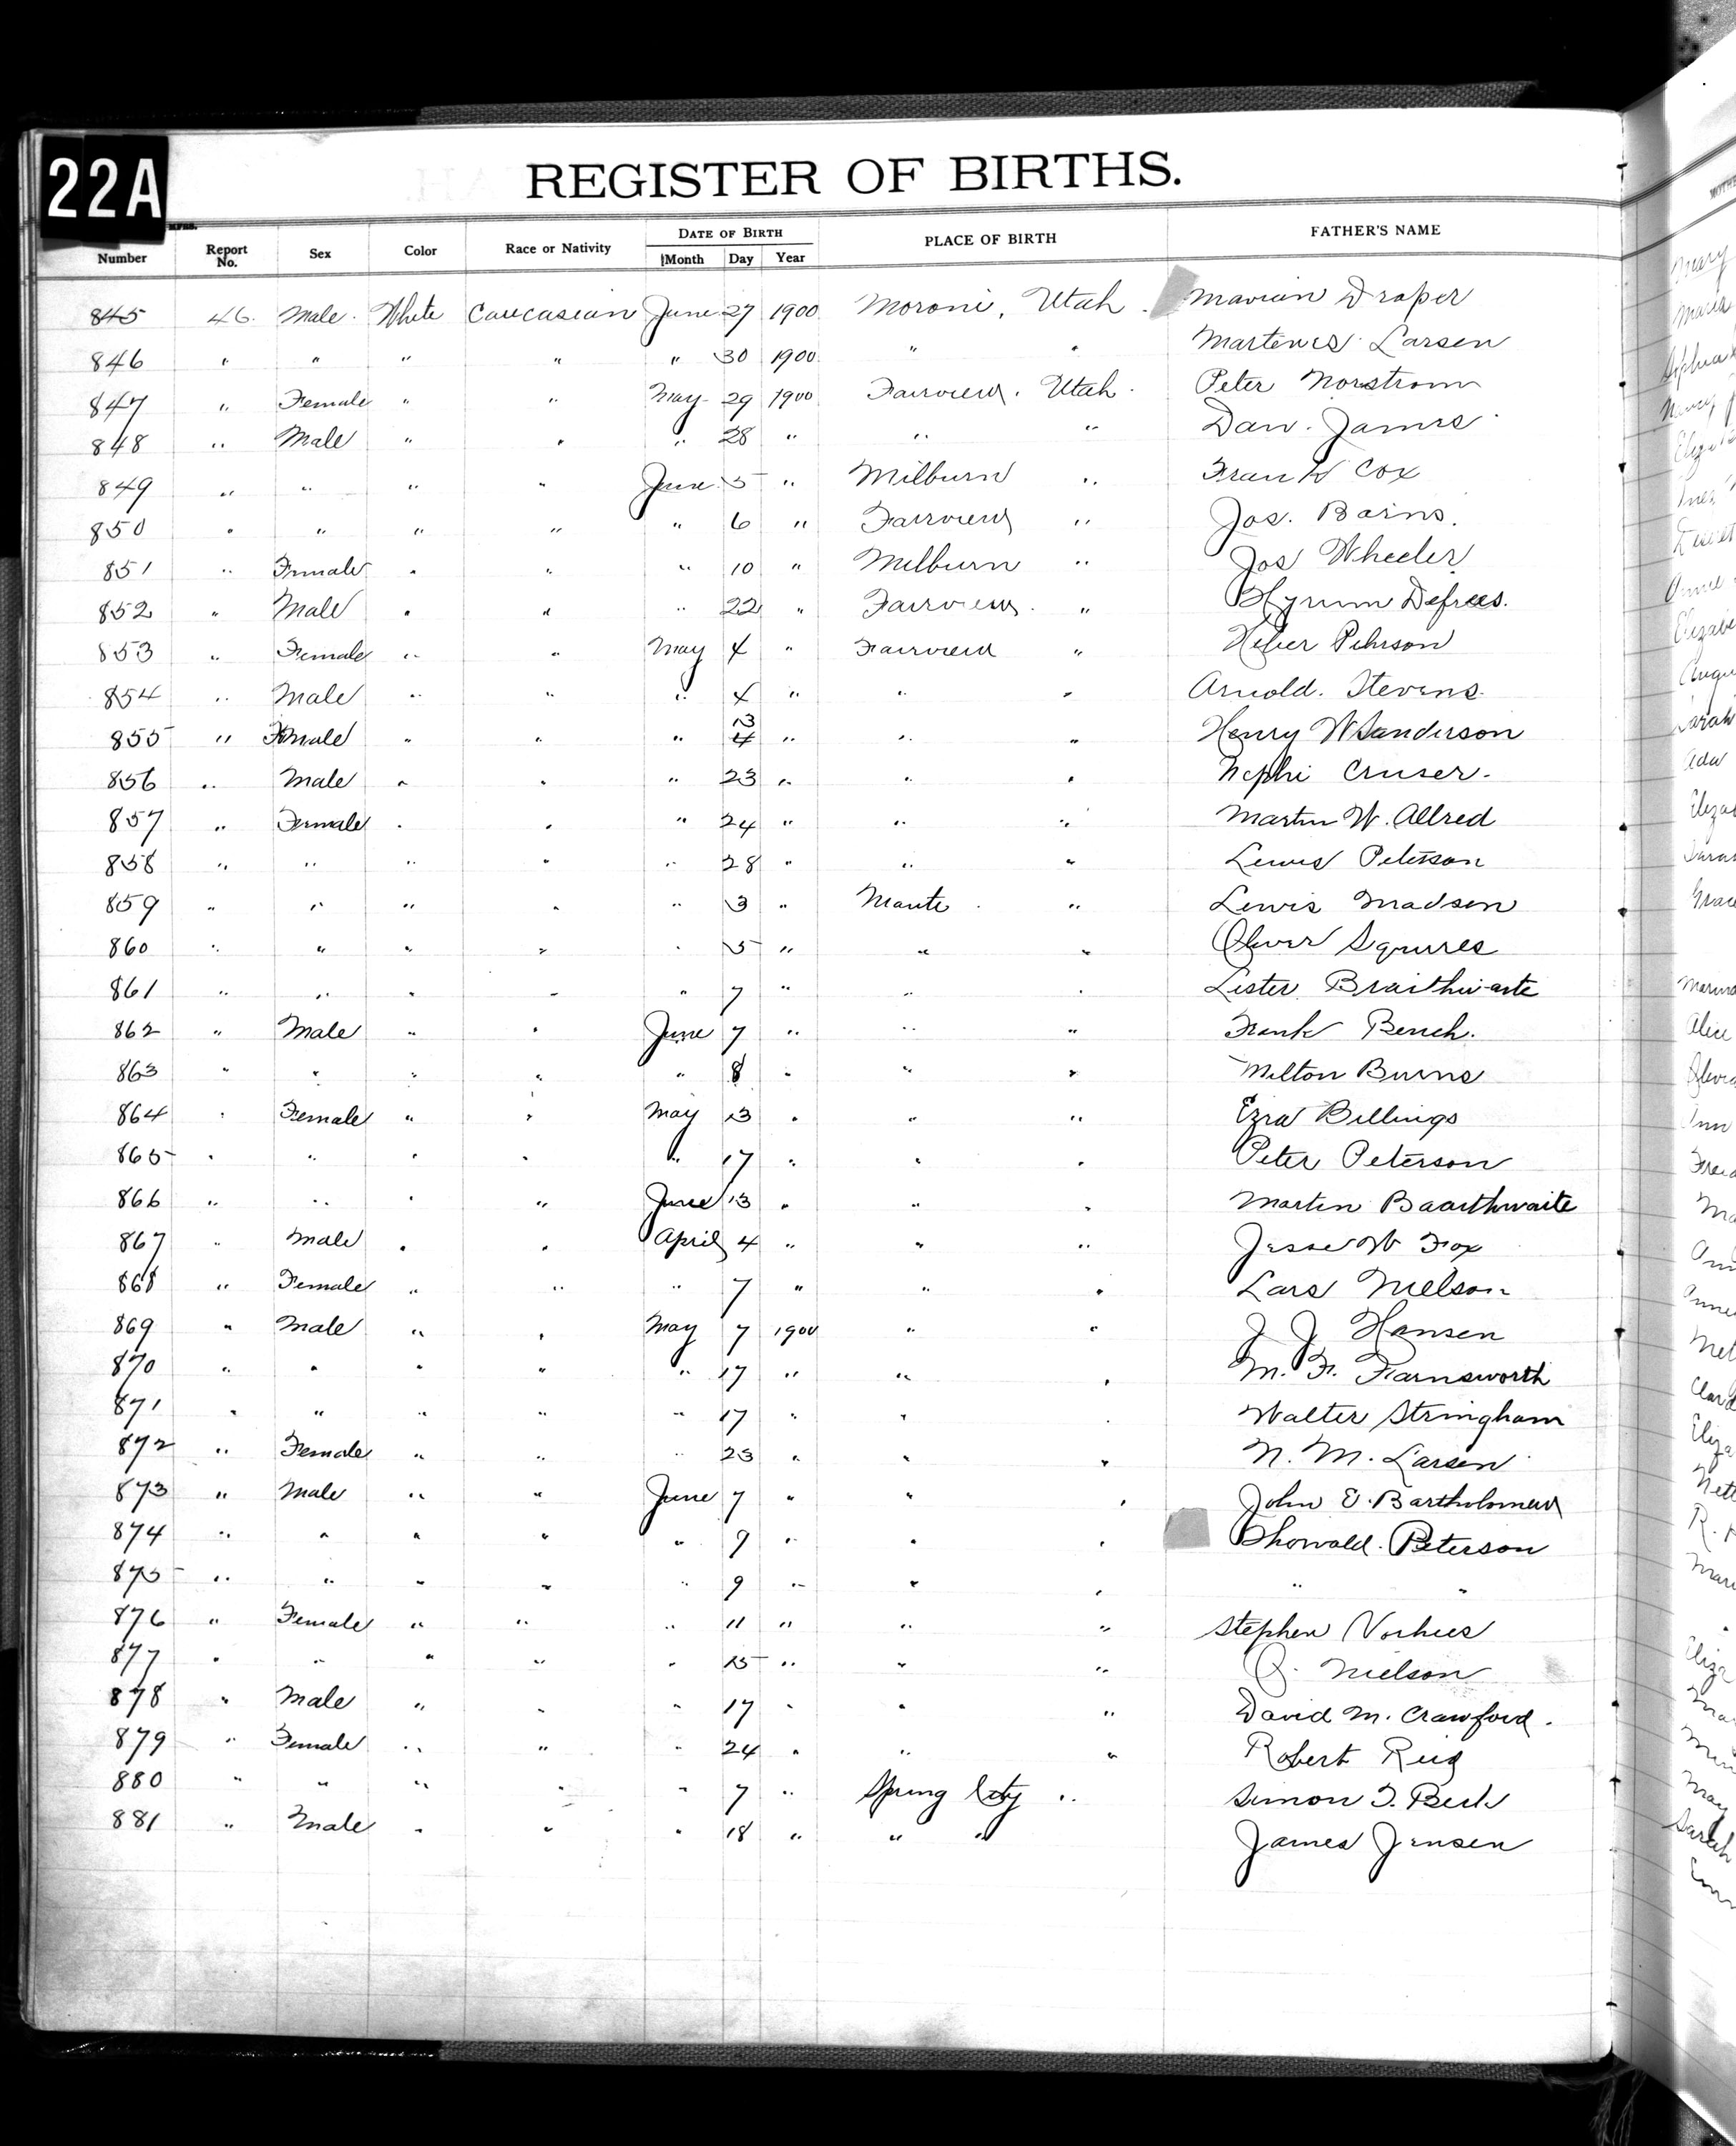 22A
REGISTER OF BIRTHS.
Number Report No. Sex Color Race or Nativity DATE OF BIRTH Month Day Year PLACE OF BIRTH FATHER'S NAME
845 46. Male. White Caucasian June 27 1900. Moroni, Utah. Marion Draper
846 " " " " " 30 1900. " " Martenes Larsen
847 " Female " " May 29 1900 Fairview. Utah. Peter Norstrom
848 " Male " " " 28 " " " Dan. James
849 " " " " June 5 " Milburn " Frank Cox
850 " " " " " 6 " Fairview " Jos. Bains.
851 " Female " " " 10 " Milburn " Jos Wheeler
852 " Male " " " 22 " Fairview. " Hyrum Defrees.
853 " Female " " May 4 " Fairview " Heber Pehrson
854 " Male " " " 4 " " " Arnold. Stevens.
855 " Female " " " 13 4 " " " Henry W Sanderson
856 " Male " " " 23 " " " Nephi Cruser.
857 " Female " " " 24 " " " Martin W. Allred
858 " " " " " 28 " " " Lewis Peterson
859 " " " " " 3 " Manti " Lewis Madsen
860 " " " " " 5 " " " Oliver Squires
861 " " " " " 7 " " " Lister Braithwaite
862 " Male " " June 7 " " " Frank Bench.
863 " " " " " 8 " " " Milton Burns
864 " Female " " May 13 " " " Ezra Billings
865 " " " " " 17 " " " Peter Peterson
866 " " " " June 13 " " " Martin Baarthwaite
867 " Male " " April 4 " " " Jesse W Fox
868 " Female " " " 7 " " " Lars Nielson
869 " Male " " May 7 1900 " " J J Hansen
870 " " " " " 17 " " " M. F. Farnsworth
871 " " " " " 17 " " " Walter Stringham
872 " Female " " " 23 " " " N. M. Larsen
873 " Male " " June 7 " " " John E. Bartholomew
874 " " " " " 9 " " " Thorvald. Peterson
875 " " " " " 9 " " " " "
876 " Female " " " 11 " " " Stephen Vorhees
877 " " " " " 15 " " " Nielson
878 " Male " " " 17 " " " David M. Crawford.
879 " Female " " " 24 " " " Robert Reid
880 " " " " " 7 " Spring City " Simon T. Beck
881 " Male " " " 18 " " " James Jensen